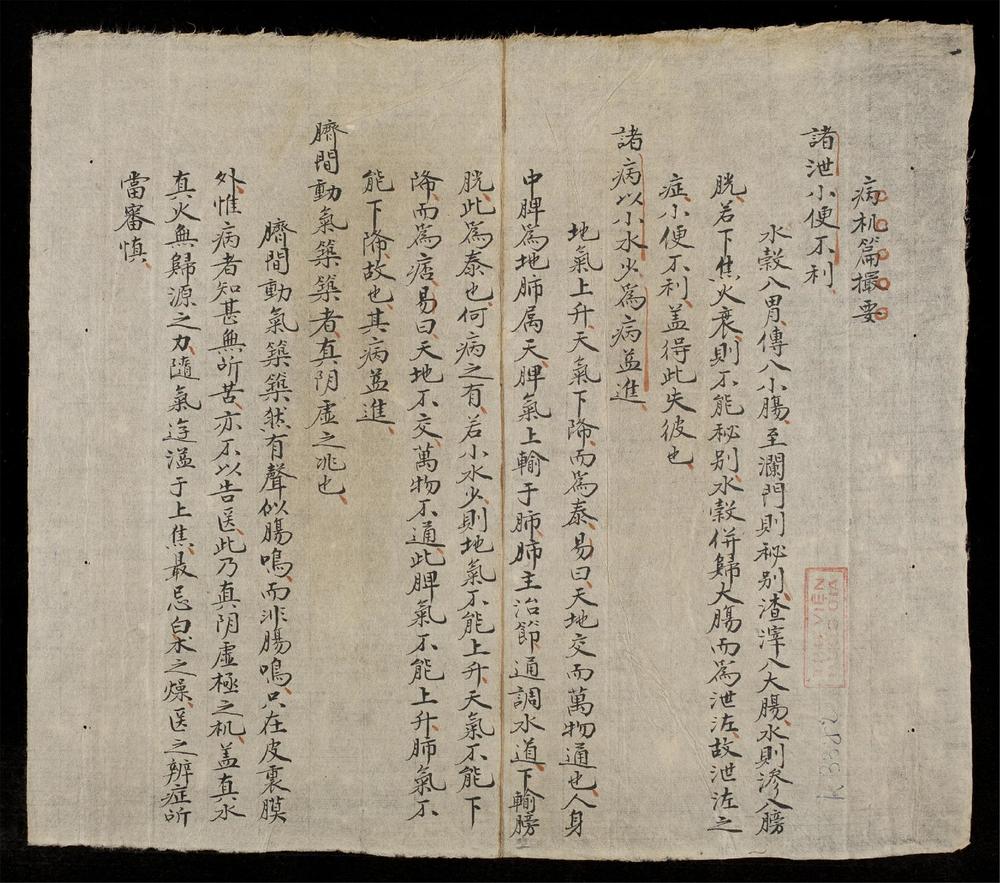 病机篇撮要
諸泄小便不利
水穀入胃傳入小腸至瀾門則秘别渣滓入大腸水則滲入膀
胱若下焦火衰則不能秘别水穀併歸大腸而爲泄泻故泄泻之
症小便不利盖得此失彼也
諸病以小水少爲病益進
地氣上升天氣下降而爲泰易曰天地交而萬物通也人身
中脾爲地肺属天脾氣上輸于肺肺主治節通調水道下輸膀
胱此爲泰也何病之有若小水少則地氣不能上升天氣不能下
降而爲痞易曰天地不交萬物不通此脾氣不能上升肺氣不
能下降故也其病益進
臍間動氣築築者真阴虚之兆也
臍間動氣築築然有聲似腸鳴而非腸鳴只在皮裏膜
外惟病者知甚無所苦亦不以告医此乃真阴虚極之机盖真水
真火無歸源之力隨氣逆溢于上焦最忌白朮之燥医之辨症所
當審慎
R.3382